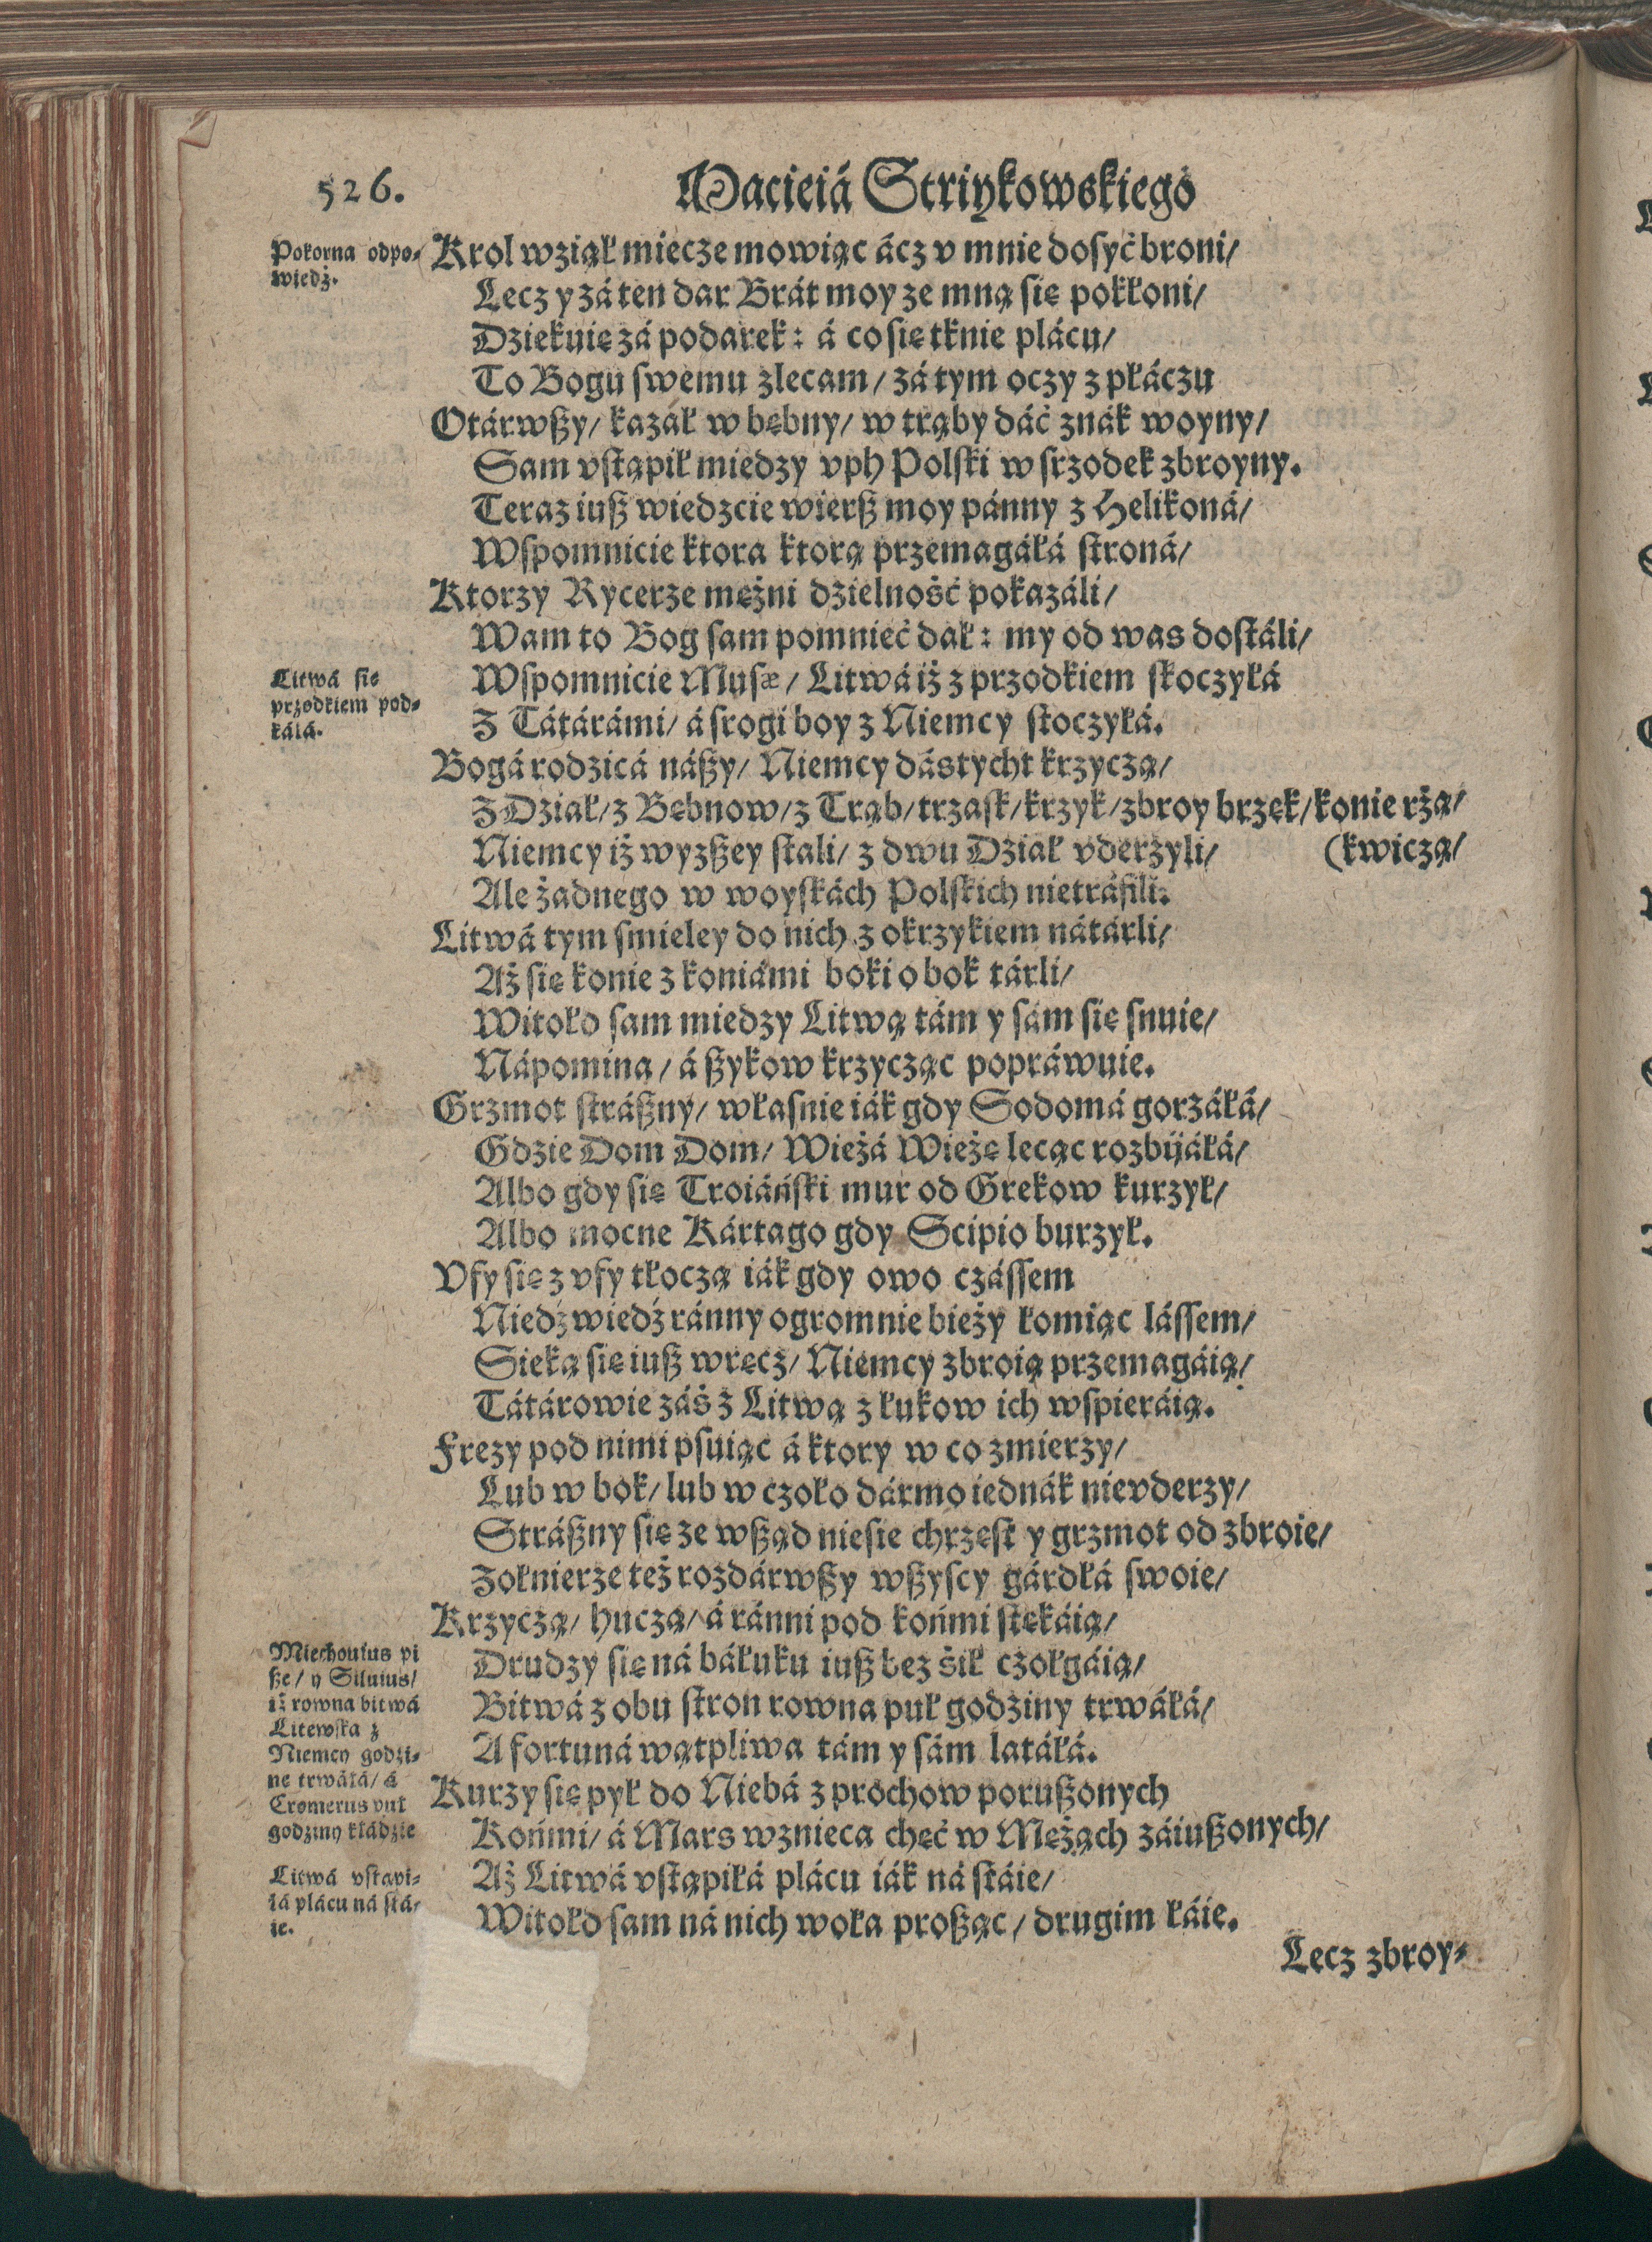 526.
Macieiá Striykowskiego
Pokorna odpo-
wiedź.
Krol wziął miecze mowiąc ácz v mnie dosyć broni/
Lecz y zá ten dar Brát moy ze mną się pokłoni/
Dziekuię zá podarek: á co się tknie plácu/
To Bogu swemu zlecam/ zá tym oczy z płáczu
Otárwßy/ kazał w bębny/ w trąby dáć znák woyny/
Sam vstąpił miedzy vph Polski w srzodek zbroyny.
Teraz iuß wiedzcie wierß moy pánny z Helikoná/
Wspomnicie ktora ktorą przemagáłá stroná/
Ktorzy Rycerze mężni dżielność pokazáli/
Wam to Bog sam pomnieć dał: my od was dostáli/
Litwá się
przodkiem pod-
káłá.
Wspomnicie Musæ/ Litwá iż z przodkiem skoczyłá
Z Tátárámi/ á srogi boy z Niemcy stoczyłá.
Bogá rodzicá náßy/ Niemcy dástycht krzyczą/
Z Dział/ z Bębnow/ z Trąb/ trzask/ krzyk/ zbroy brzęk/ konie rżą/
(kwiczą/
Niemcy iż wyzßey stali/ z dwu Dział vderżyli/
Ale żadnego w woyskách Polskich nietráfili.
Litwá tym smieley do nich z okrzykiem nátárli/
Aż się konie z koniámi boki o bok tárli/
Witołd sam miedzy Litwą tám y sám się snuie/
Nápomina/ á ßykow krzycząc popráwuie.
Grzmot stráßny/ własnie iák gdy Sodomá gorzáłá/
Gdzie Dom Dom/ Wieżá Wieżę lecąc rozbijáłá/
Albo gdy się Troiáński mur od Grekow kurzył/
Albo mocne Kártago gdy Scipio burzył.
Vfy się z vfy tłoczą iák gdy owo czássem
Niedźwiedź ránny ogromnie bieży łomiąc lássem/
Sieką się iuß wręcz/ Niemcy zbroią przemagáią/
Tátárowie záś z Litwą z łukow ich wspieráią.
Frezy pod nimi psuiąc á ktory w co zmierzy/
Lub w bok/ lub w czoło dármo iednák nievderzy/
Stráßny się ze wßąd niesie chrzęst y grzmot od zbroie/
Zołnierze też rozdárwßy wßyscy gárdłá swoie/
Krzyczą/ huczą/ á ránni pod końmi stękáią/
Miechouius pi
ße/ y Siluius/
iż rowna bitwá
Litewska z
Niemcy godzi-
ne trwáłá/ á
Cromerus puł
godziny kłádzie
Drudzy się ná báłuku iuß bez śił czołgáią/
Bitwá z obu stron rowna puł godziny trwáłá/
A fortuná wątpliwa tám y sám latáłá.
Kurzy się pył do Niebá z prochow porußonych
Końmi/ á Mars wznieca chęć w Mężach záiußonych/
Litwá vstąpi-
łá plácu ná stá-
ie.
Aż Litwá vstąpiłá plácu iák ná stáie/
Witołd sam ná nich woła proßąc/ drugim łáie.
Lecz zbroy-